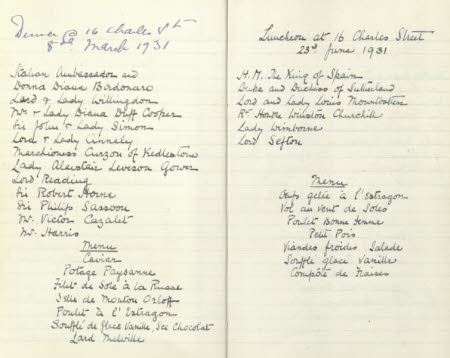 Dinner @ 16 Charles St
8th March 1931
Italian Ambassador and
Donna Diana Bordonaro
Lord & Lady Willingdon
Mr & Lady Diana Duff Cooper
Sir John & Lady Simon
Lord & Lady
Marchioness Curzon of Kedlestone
Lady Alaistair Leveson Gower
Lord Reading
Sir Robert Horne
Sir Philip Sassoon
Mr. Victor Cazalet
Mr. Harris
Menu
Caviar
Potage Paysanne
Filet de Sole à la Russe
Selle de Mouton Orloff
Poulet à l'Estragon
Soufflé de glace Vanille, Sce Chocolat
Lard Melville
Luncheon at 16 Charles Street
23rd June 1931.
H.M. The King of Spain
Duke and Duchess of Sutherland
Lord and Lady Louis Mountbatten
Rt Honble Winston Churchill
Lady Wimborne
Lord Sefton
Menu
Oeufs gelée à l'Estragon
Vol au vent de Soles
Poulet Bonne Femme
Petit Pois
Viandes froides Salade
Soufflé glacé Vanille
Compôte de Fraises